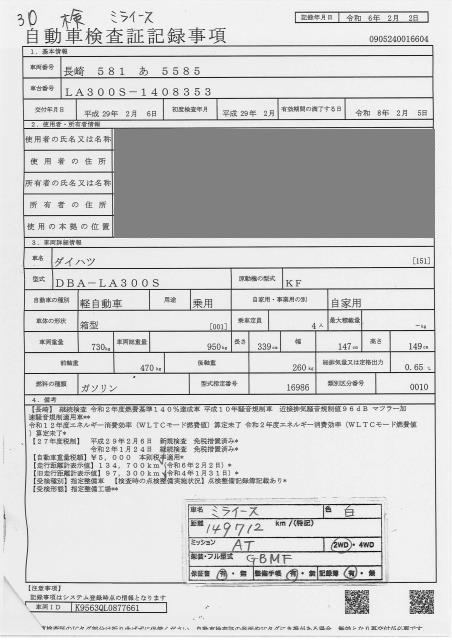 30 検 ミライース
記録年月日 令和 6年 2月 2日
自動車検査証記録事項
0905240016604
1.基本情報
車両番号 長崎 581 あ 5585
車台番号 LA300S-1408353
交付年月日 平成 29年 2月 6日 初度検査年月 平成 29年 2月 有効期間の満了する日 令和 8年 2月 5日
2.使用者・所有者情報
使用者の氏名又は名称
使用者の住所
所有者の氏名又は名称
所有者の住所
使用の本拠の位置
3.車両詳細情報
車名 ダイハツ [151]
型式 DBA-LA300S 原動機の型式 KF
自動車の種別 軽自動車 用途 乗用 自家用・事業用の別 自家用
車体の形状 箱型 [001] 乗車定員 4人 最大積載量 -kg
車両重量 730kg 車両総重量 950kg 長さ 339cm 幅 147cm 高さ 149cm
前軸重 470kg 後軸重 260kg 総排気量又は定格出力 0.65 L
燃料の種類 ガソリン 型式指定番号 16986 類別区分番号 0010
4.備考
【長崎】 継続検査 令和2年度燃費基準140%達成車 平成10年騒音規制車 近接排気騒音規制値96dB マフラー加
速騒音規制適用車**
令和12年度エネルギー消費効率(WLTCモード燃費値)算定未了 令和2年度エネルギー消費効率(WLTCモード燃費値
)算定未了*
【27年度税制】 平成29年2月6日 新規検査 免税措置済み*
令和2年1月24日 継続検査 免税措置済み*
【自動車重量税額】¥5,000 本則税率適用*
【走行距離計表示値】134,700km(令和6年2月2日)*
【旧走行距離計表示値】97,300km(令和4年1月31日)*
【受検種別】指定整備車 【検査時の点検整備実施状況】点検整備記録簿記載あり*
【受検形態】指定整備工場**
車名 ミライース 色 白
距離 149712 km/(特記)
ミッション AT 2WD・4WD
架装・フル型式 GBMF
保証書 有・無 整備手帳 有・無 記録簿 有・無
【注意事項】
記録事項はシステム登録時点の情報となります
車両ID K9563QL0877661